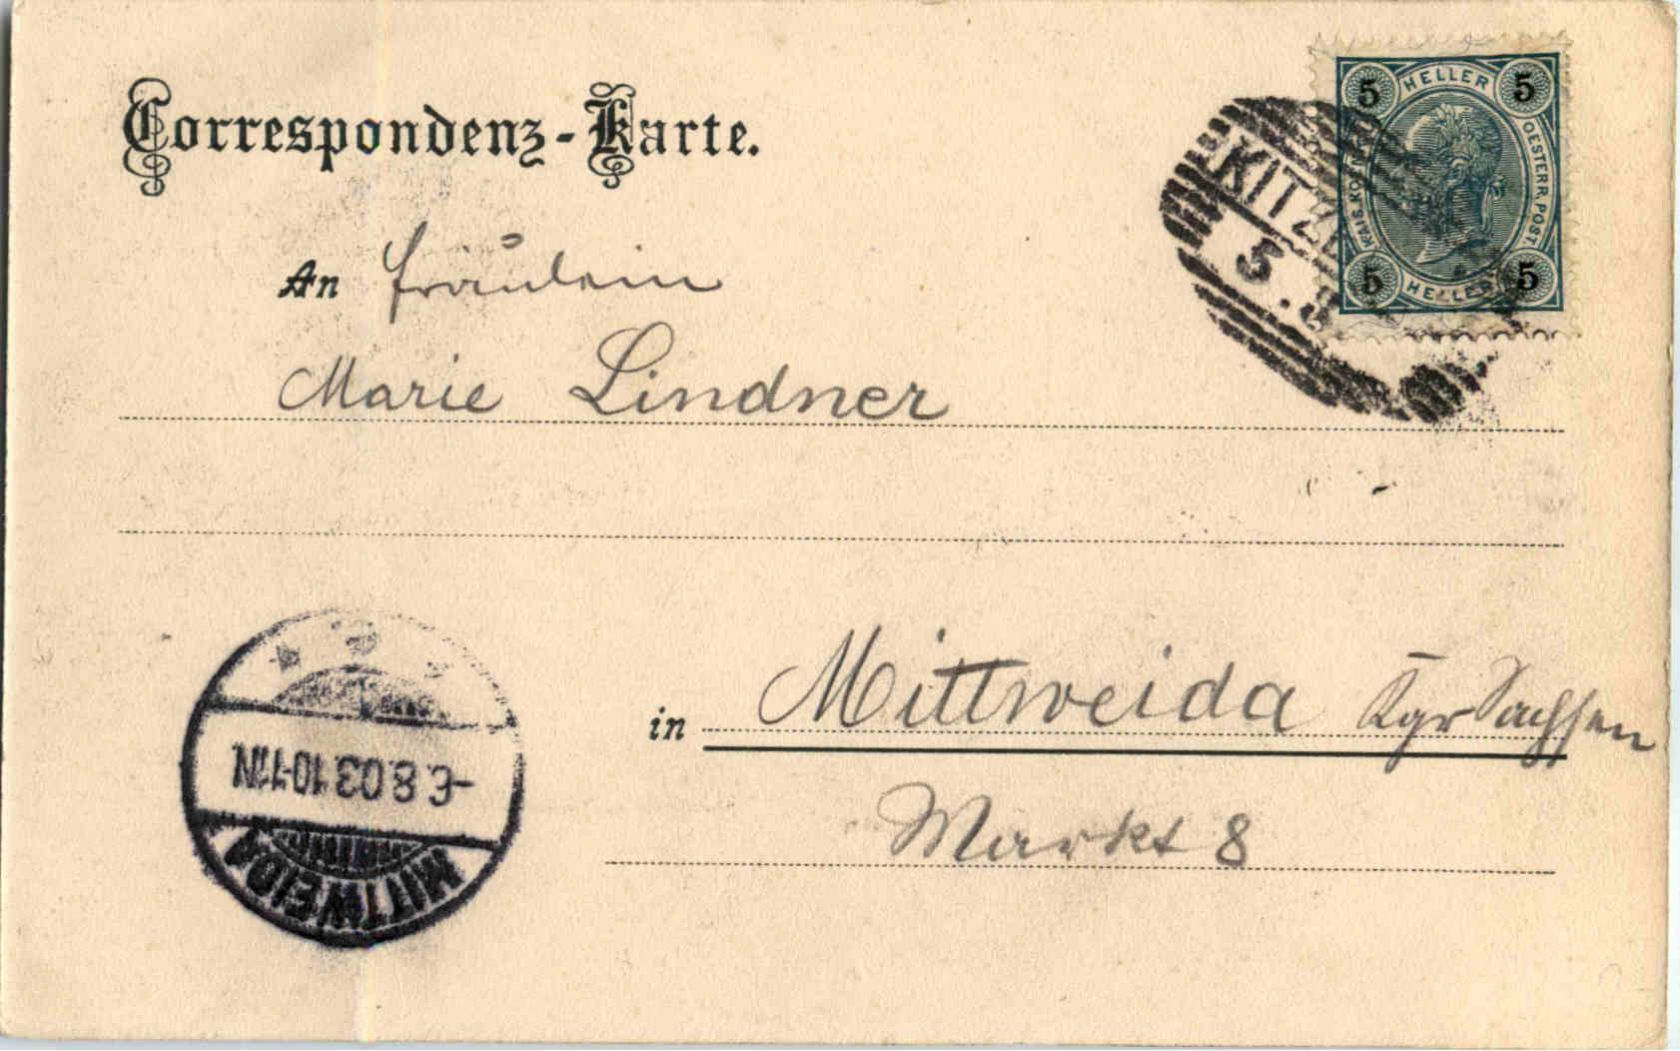 Correspondenz-Karte.
5 HELLER 5
KAIS. KÖ
OESTERR. POST.
5 HELLER 5
KITZ
5.8
An Fräulein
Marie Lindner
in Mittweida Kgr Sachsen
Markt 8
-6.8.03.10-11N.
MITTWEIDA